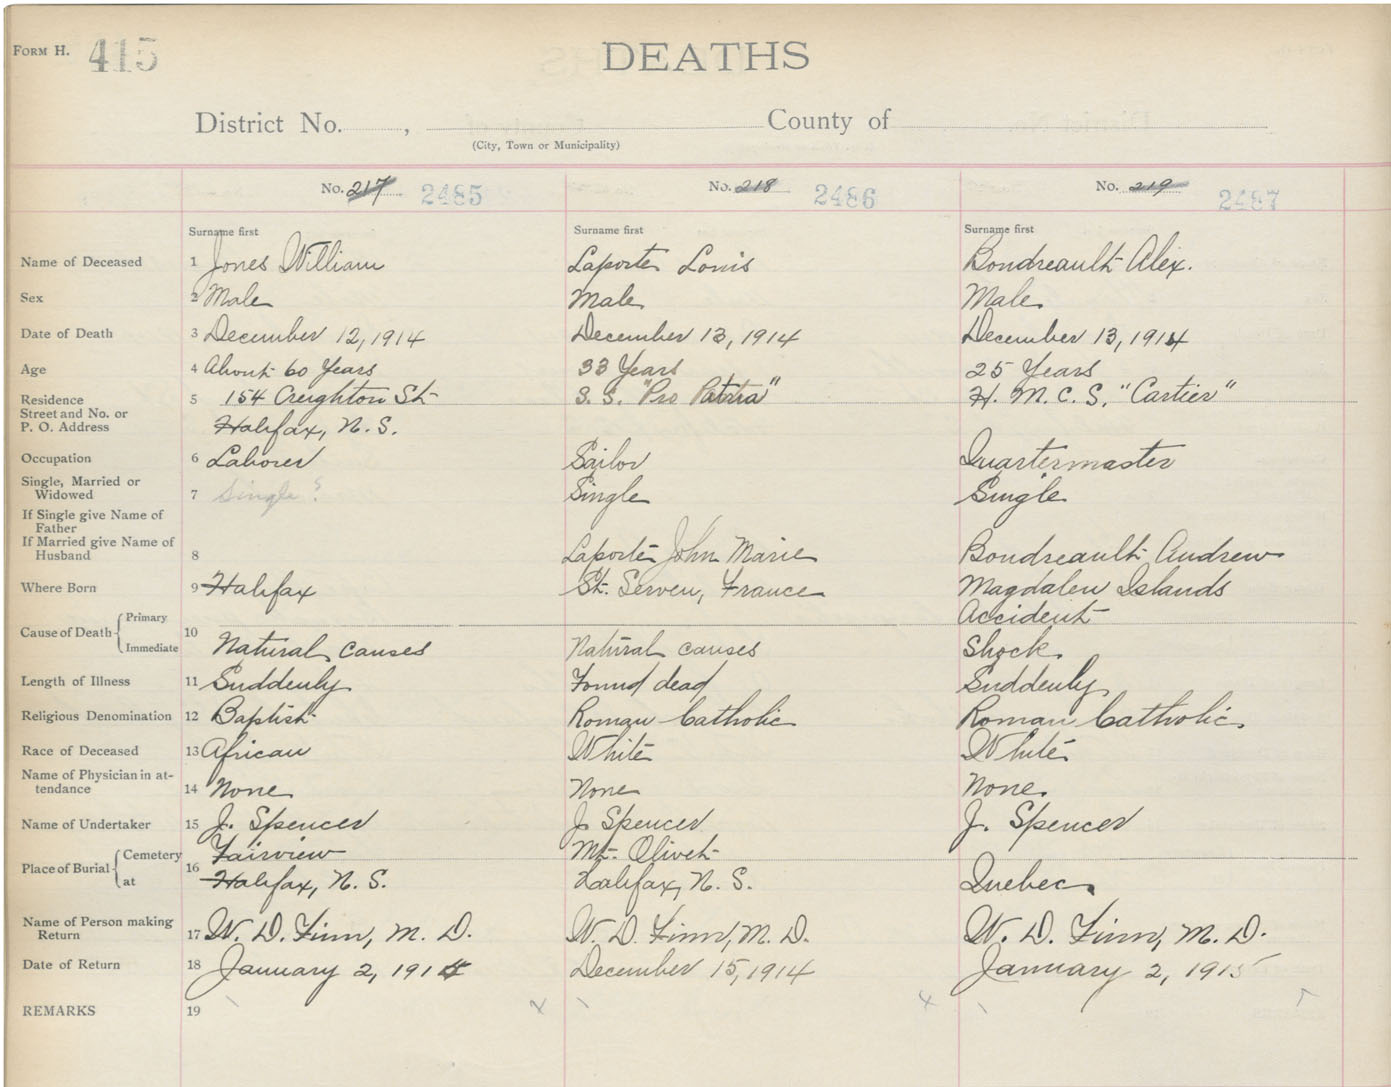 FORM H. 415
DEATHS
District No. , County of
(City, Town or Municipality)
No. 217 2485 No. 218 2486 No. 219 2487
Surname first Surname first Surname first
Name of Deceased 1 Jones William Laporte Louis Bondreault Alex.
Sex 2 Male Male Male
Date of Death 3 December 12, 1914 December 13, 1914 December 13, 1914
Age 4 About 60 Years 33 Years 25 Years
Residence 5 154 Creighton St S. S. "Pro Patria" H. M. C. S. "Cartier"
Street and No. or
P. O. Address Halifax, N. S.
Occupation 6 Laborer Sailor Quartermaster
Single, Married or
Widowed 7 Single? Single Single
If Single give Name of
Father
If Married give Name of
Husband 8 Laporte John Marie Bondreault Andrew
Where Born 9 Halifax St. Serven, France Magdalen Islands
Cause of Death Primary Accident
10 Immediate Natural causes Natural causes Shock
Length of Illness 11 Suddenly Found dead Suddenly
Religious Denomination 12 Baptist Roman Catholic Roman Catholic
Race of Deceased 13 African White White
Name of Physician in at-
tendance 14 None None None
Name of Undertaker 15 J. Spencer J. Spencer J. Spencer
Place of Burial Cemetery Fairview Mt. Olivet
16 at Halifax, N. S. Halifax, N. S. Quebec
Name of Person making
Return 17 W. D. Finn, M. D. W. D. Finn, M. D. W. D. Finn, M. D.
Date of Return 18 January 2, 1914 December 15, 1914 January 2, 1915
REMARKS 19